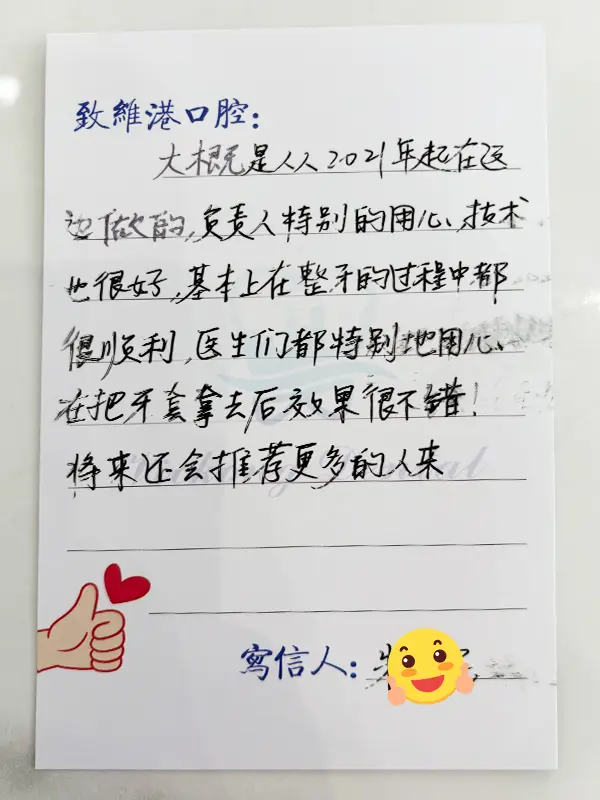 致維港口腔:
大概是从人2021年起在这
边做的,负责人特别的用心、技术
也很好,基本上在整牙的过程中都
很顺利,医生们都特别地用心、
在把牙套拿去后效果很不错!
将来还会推荐更多的人来
寫信人: